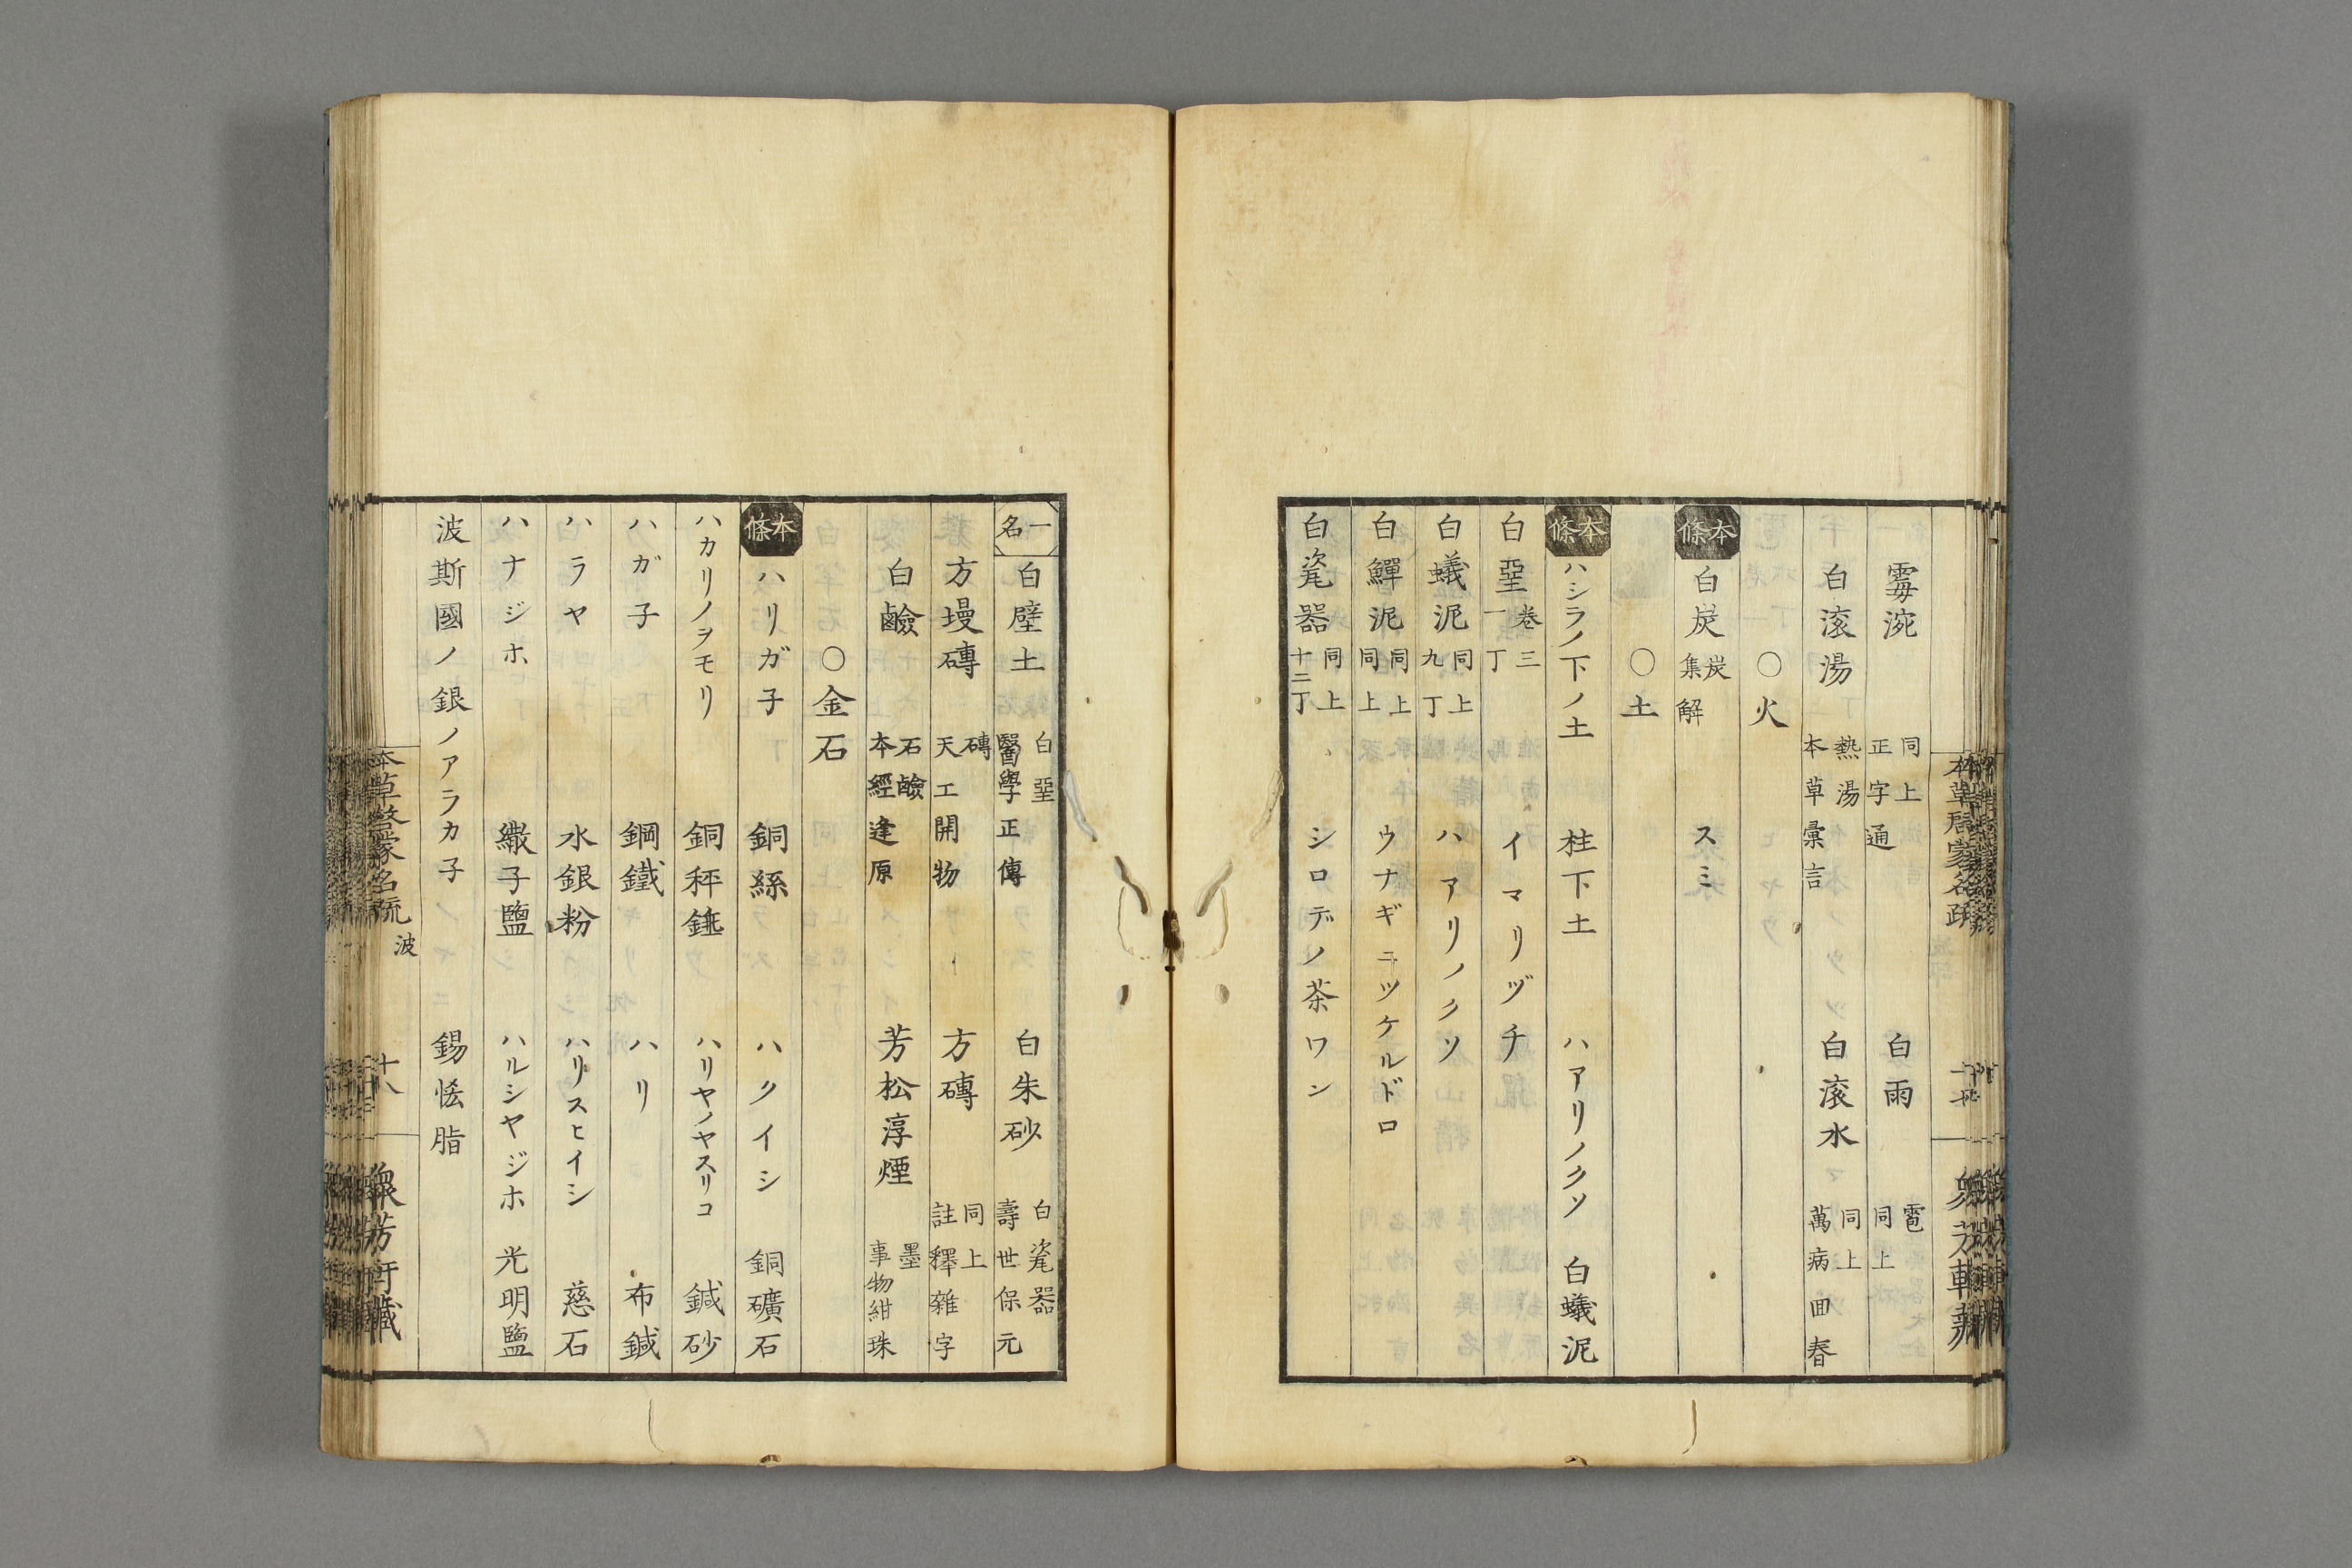 霉涴 同上 正字通 白雨 雹 同上
白滚湯 熱湯 本草彙言 白滚水 同上 萬病囬春
○火
本條 白炭 炭集解 スミ
○土
本條 ハシラノ下ノ土 柱下土 ハアリノクソ 白蟻泥
白堊 卷三 一丁 イマリヅチ
白蟻泥 同上 九丁 ハアリノクソ
白鱓泥 同上 同上 ウナギニツケルドロ
白瓷器 同上 十二丁 シロデノ茶ワン
一名 白壁土 白堊 醫學正傳 白朱砂 白瓷器 壽世保元
方墁磚 磚 天工開物 方磚 同上 註釋雜字
白鹼 石鹼 本經逢原 芳松淳煙 墨 事物紺珠
○金石
本條 ハリガ子 銅絲 ハクイシ 銅礦石
ハカリノヲモリ 銅秤錘 ハリヤノヤスリコ 鍼砂
ハガ子 鋼鐵 ハリ 布鍼
ハラヤ 水銀粉 ハリスヒイシ 慈石
ハナジホ 繖子鹽 ハルシヤジホ 光明鹽
波斯國ノ銀ノアラカ子 錫恡脂
本草啓蒙名疏 波 十八 衆芳軒藏